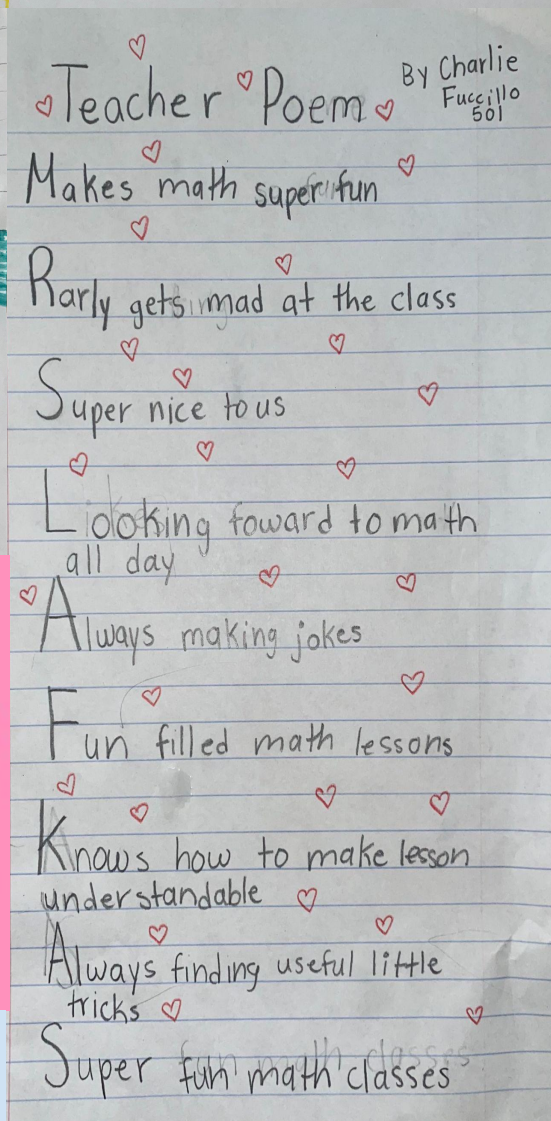 Teacher Poem
By Charlie
Fuccillo
501
Makes math super fun
Rarly gets mad at the class
Super nice to us
Looking foward to math
all day
Always making jokes
Fun filled math lessons
Knows how to make lesson
understandable
Always finding useful little
tricks
Super fun math classes